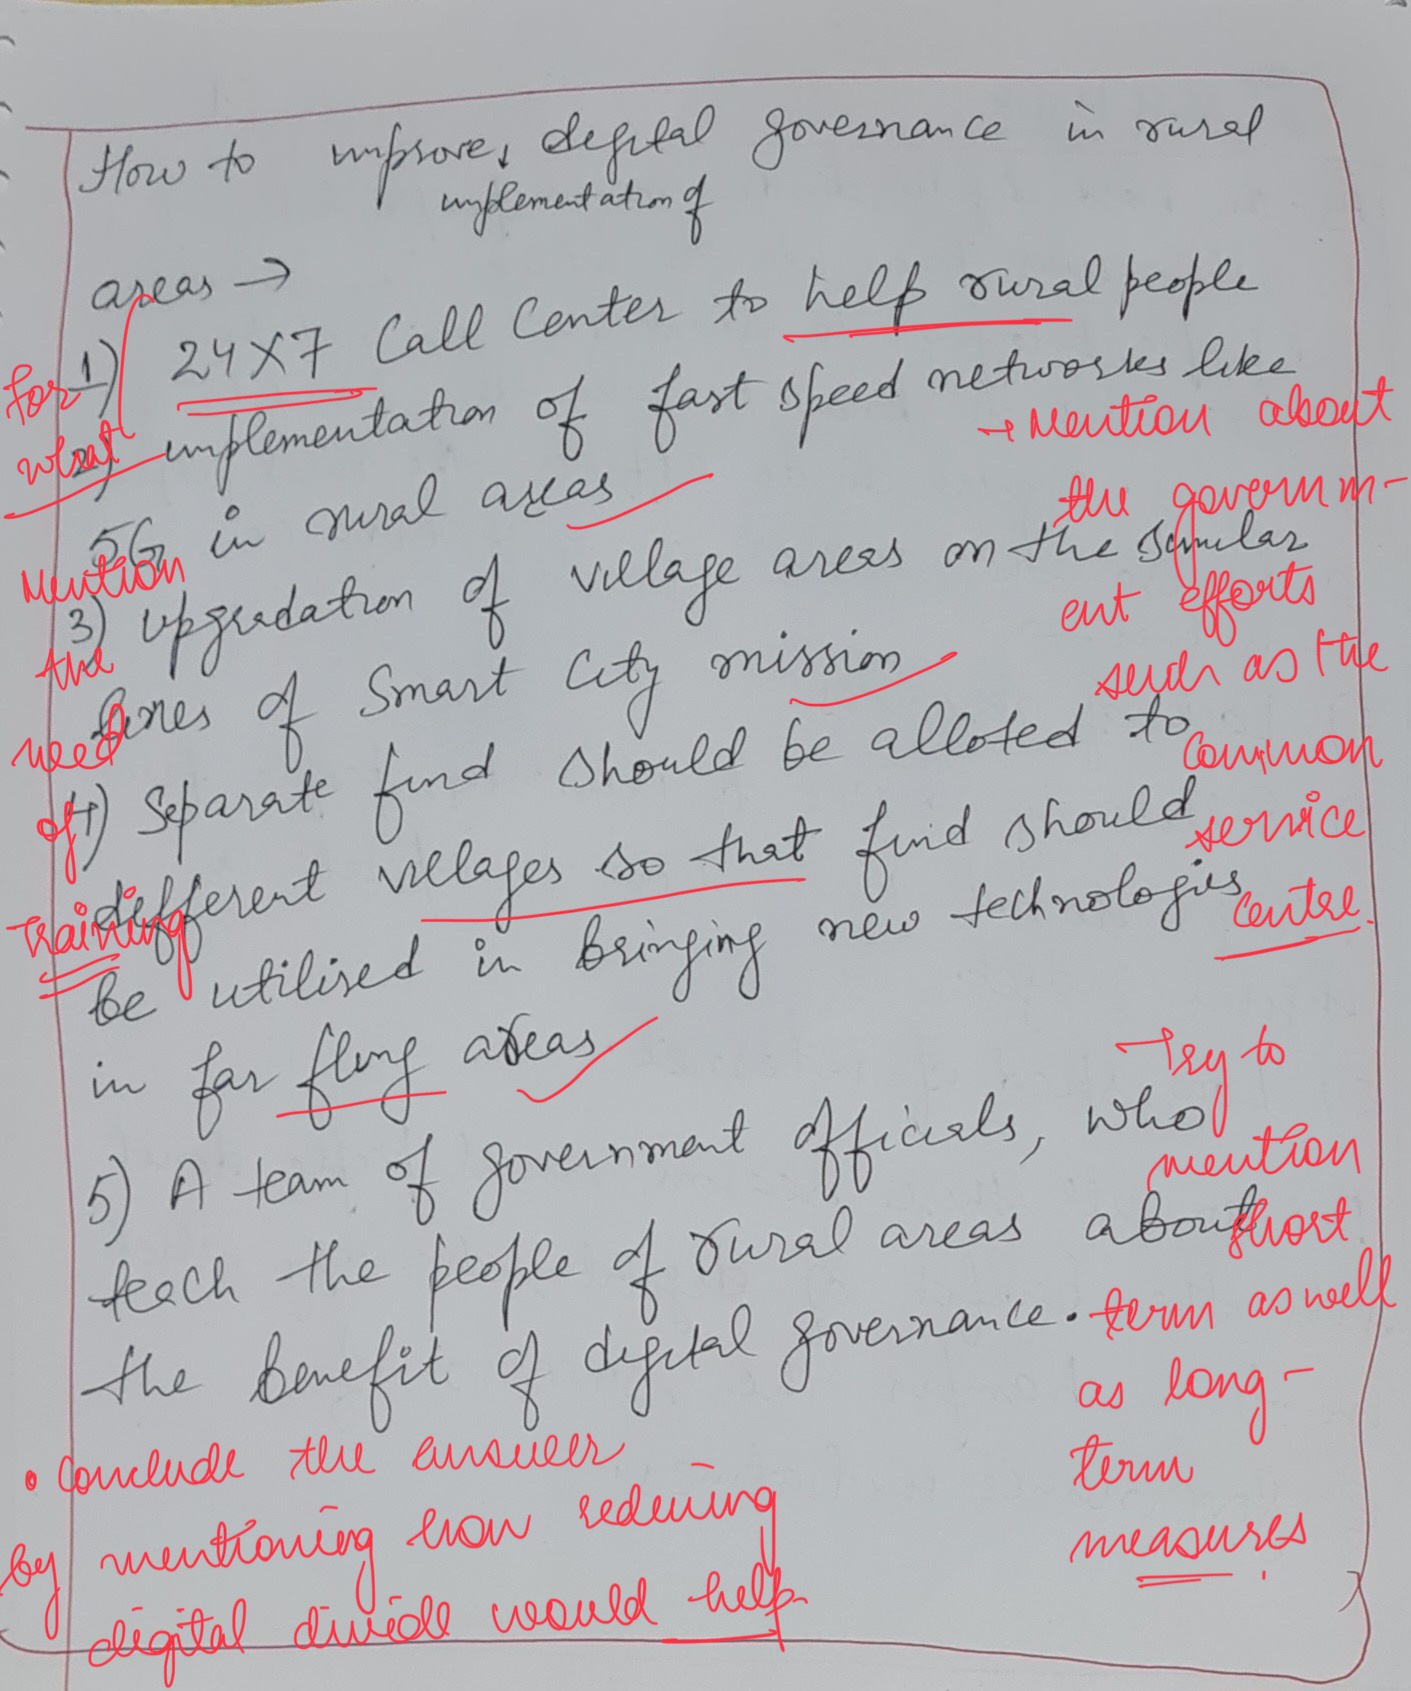 How to improve, digital governance in rural
implementation of
areas →
1) 24X7 Call Center to help rural people
2) implementation of fast speed networks like
5G in rural areas
3) upgradation of village areas on the similar
lines of Smart City mission
4) Separate fund should be alloted to
different villages so that fund should
be utilised in bringing new technologies
in far flung areas
5) A team of government officials, who
teach the people of rural areas about
the benefit of digital governance.
For
what
Mention
the
need
of
Training
→ Mention about
the governm-
ent efforts
such as the
Common
service
Centre.
Try to
mention
short
term as well
as long-
term
measures.
• Conclude the answer
by mentioning how reducing
digital divide would help.